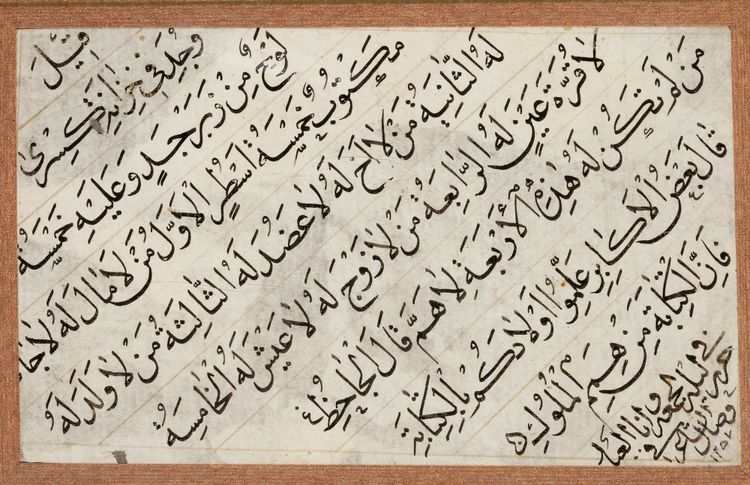 قيل
وجد في خزائن كسرى
لوح من زبرجد وعليه خمسة
مكتوب خمسة اسطر الاول من لا مال له لا جا
له الثانية من لا اخ له لا عضد له الثالثة من لا ولد له
لا قرة عين له الرابعة من لا زوج له لا عيش له الخامسة
من لم تكن له هذه الاربعة لا هم قال الجاحظ
قال بعض الاكابر علموا اولادكم بالكتابة
فان الكتابة من همم الملوك
في ليلة الجمعة
وانا العبد
وصال